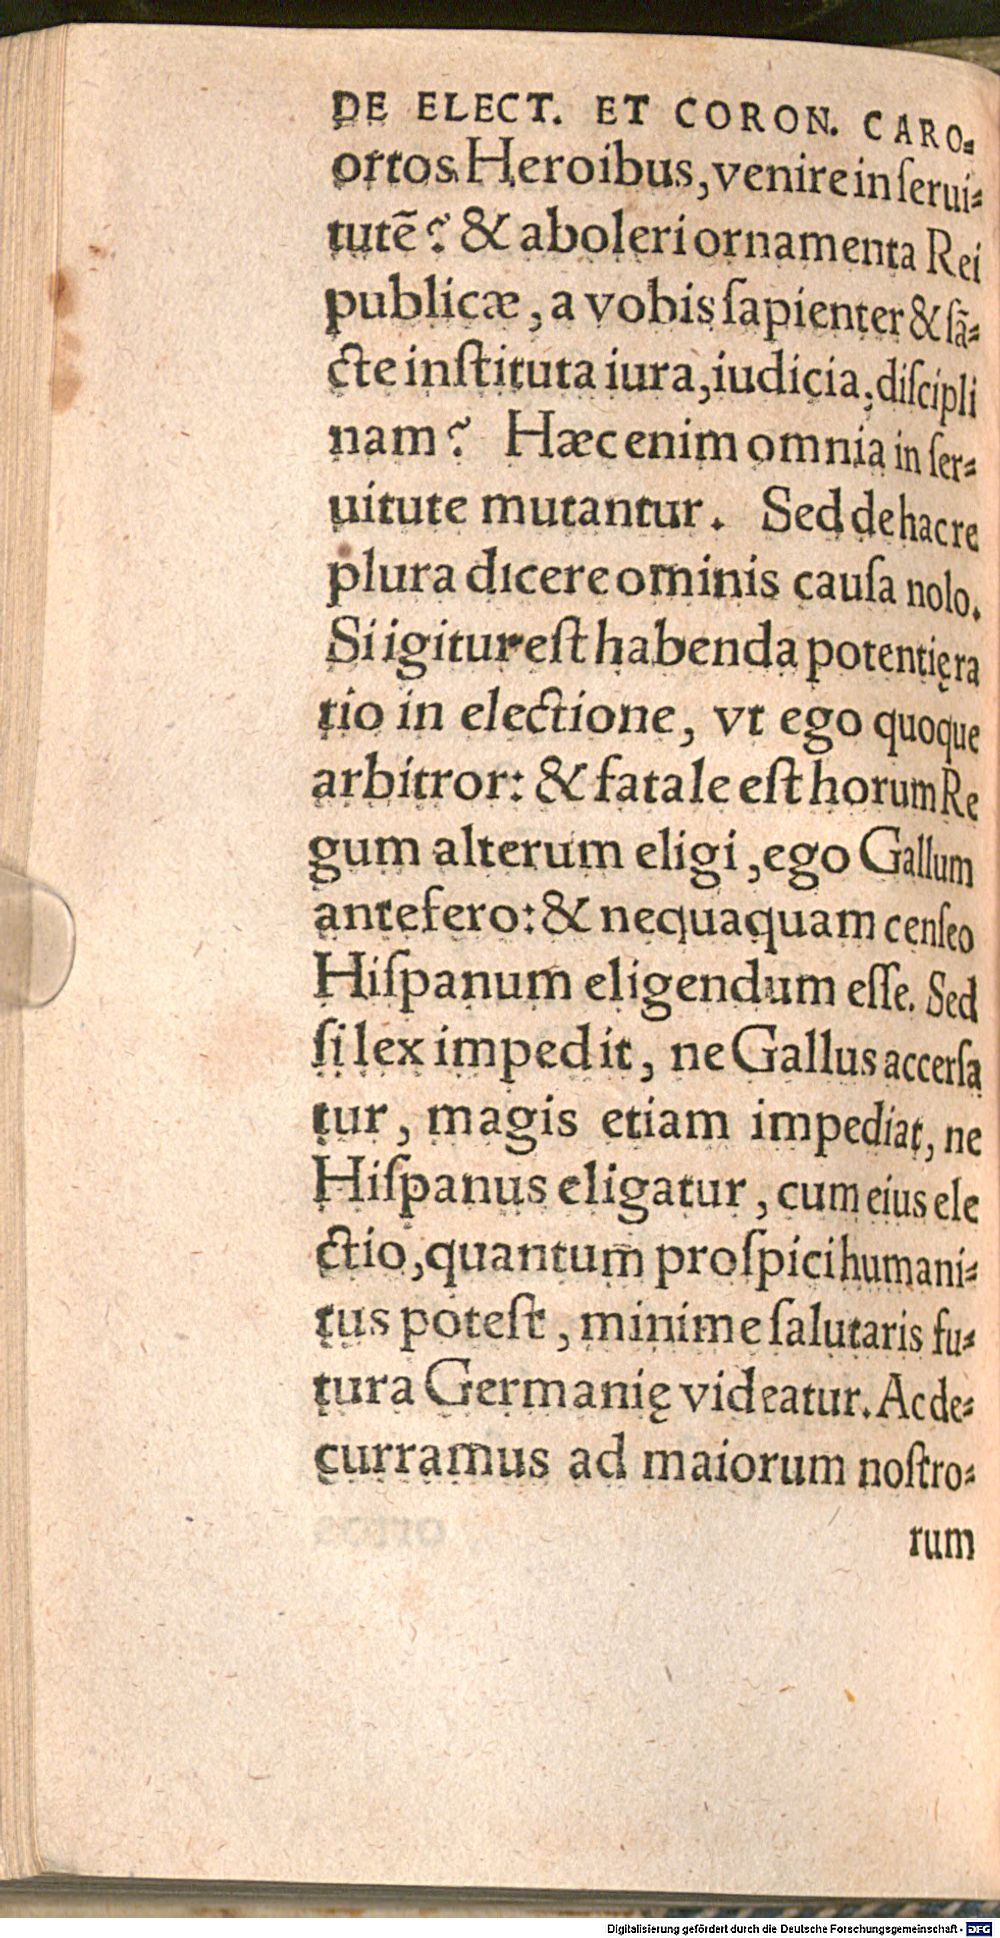 DE ELECT. ET CORON. CARO⸗
ortos Heroibus, venire in ſerui⸗
tutē? & aboleri ornamenta Rei
publicæ, a vobis ſapienter & ſā⸗
cte inſtituta iura, iudicia, diſcipli
nam? Hæc enim omnia in ſer⸗
uitute mutantur. Sed de hac re
plura dicere ominis cauſa nolo.
Si igitur eſt habenda potentię ra
tio in electione, vt ego quoque
arbitror: & fatale eſt horum Re
gum alterum eligi, ego Gallum
antefero: & nequaquam cenſeo
Hiſpanum eligendum eſſe. Sed
ſi lex impedit, ne Gallus accerſa
tur, magis etiam impediat, ne
Hiſpanus eligatur, cum eius ele
ctio, quantum proſpici humani⸗
tus poteſt, minime ſalutaris fu⸗
tura Germanię videatur. Ac de⸗
curramus ad maiorum noſtro⸗
rum
Digitalisierung gefördert durch die Deutsche Forschungsgemeinschaft - DFG